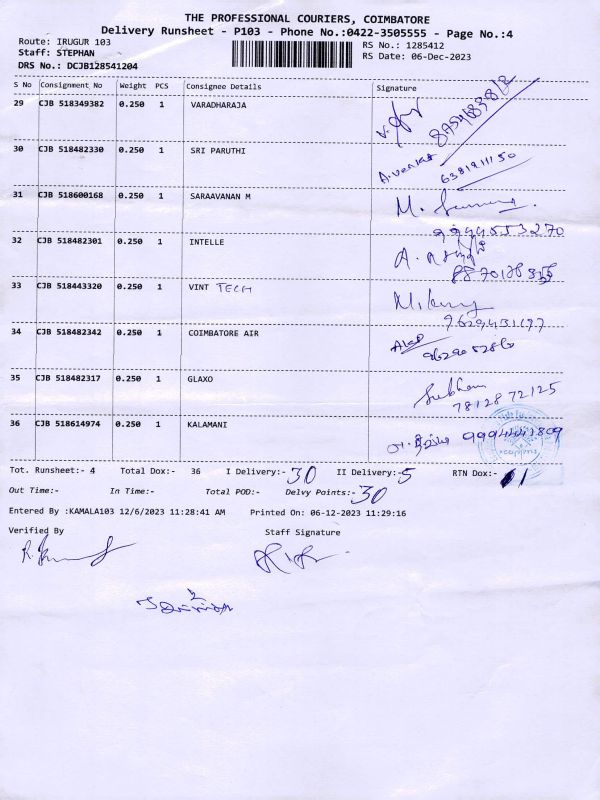 THE PROFESSIONAL COURIERS, COIMBATORE
Delivery Runsheet - P103 - Phone No.:0422-3505555 - Page No.:4
Route: IRUGUR 103
RS No.: 1285412
Staff: STEPHAN
RS Date: 06-Dec-2023
DRS No.: DCJB128541204
S No Consignment No Weight PCS Consignee Details Signature
29 CJB 518349382 0.250 1 VARADHARAJA
30 CJB 518482330 0.250 1 SRI PARUTHI
6381911150
31 CJB 518600168 0.250 1 SARAAVANAN M M.
9994553270
32 CJB 518482301 0.250 INTELLE A.
33 CJB 518443320 0.250 1 VINT TECH
9629431197
34 CJB 518482342 0.250 1 COIMBATORE AIR
35 CJB 518482317 0.250 1 GLAXO Subham
7812872125
36 CJB 518614974 0.250 1 KALAMANI
Tot. Runsheet:- 4 Total Dox:- 36 I Delivery:- 30 II Delivery:- 5 RTN Dox:- 01
Out Time:- In Time:- Total POD:- Delvy Points:- 30
Entered By :KAMALA103 12/6/2023 11:28:41 AM Printed On: 06-12-2023 11:29:16
Verified By Staff Signature